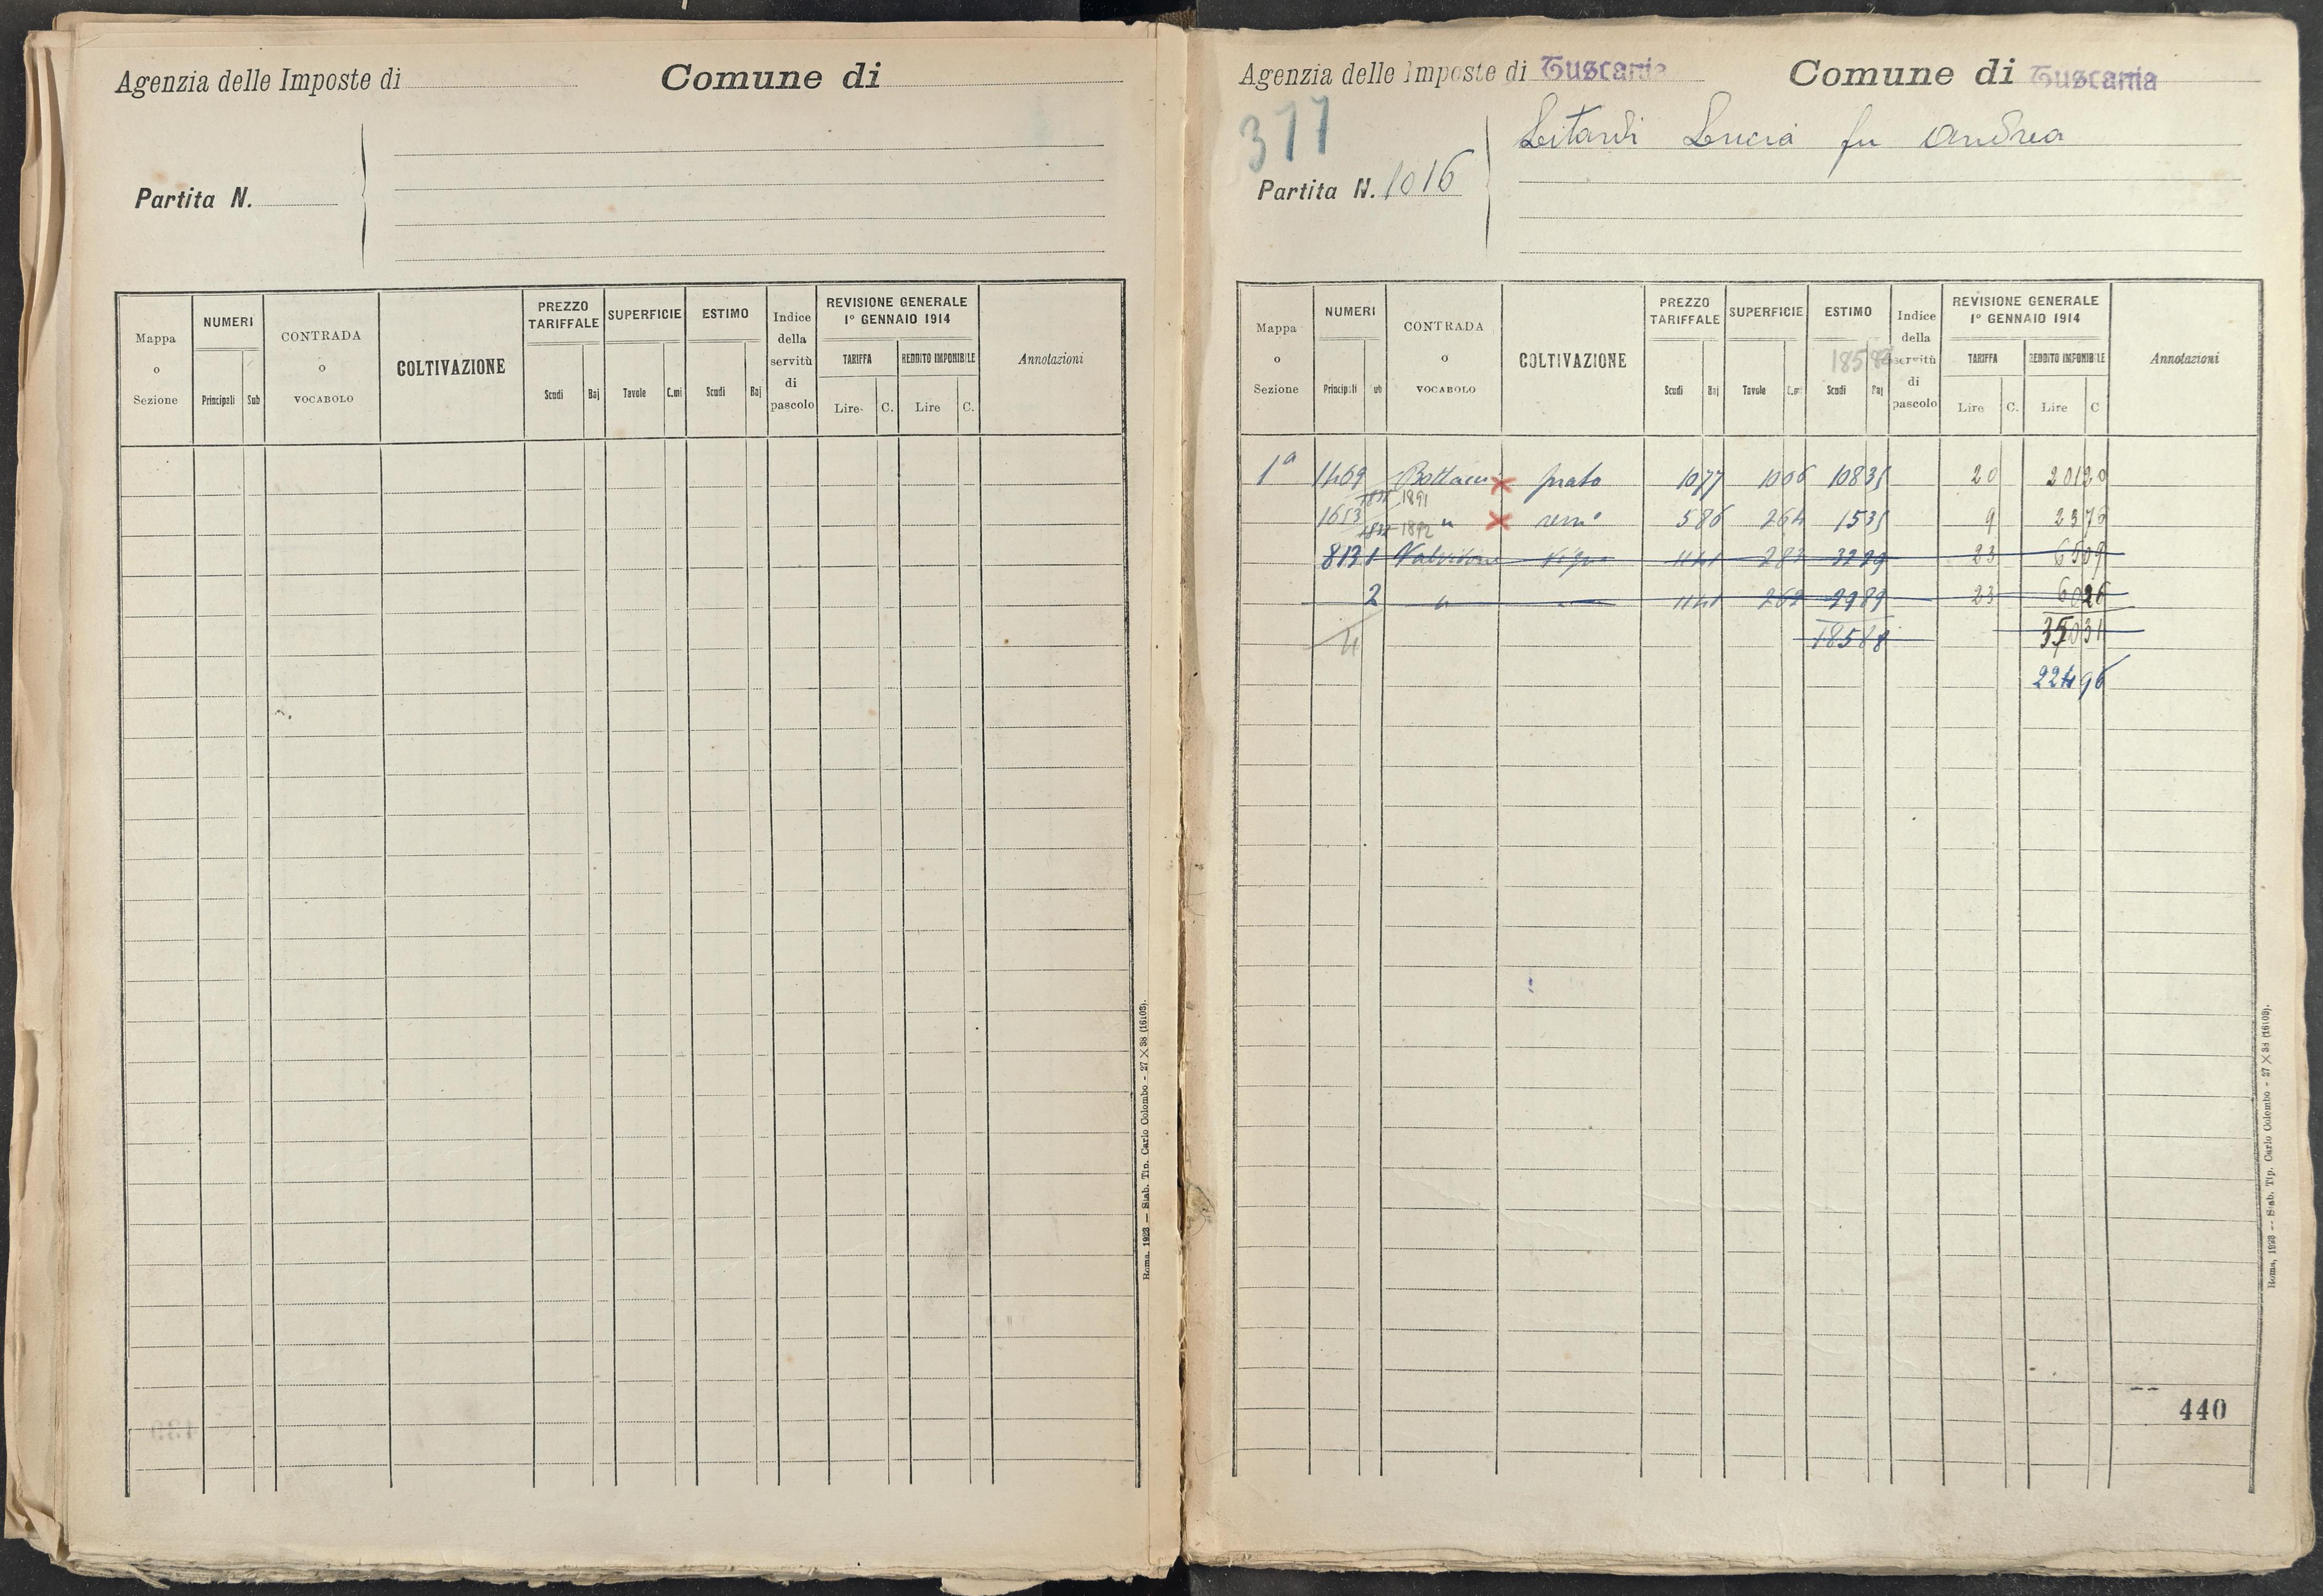 Agenzia delle Imposte di
Comune di
Partita N.
Mappa o Sezione
NUMERI
Principali
Sub
CONTRADA o VOCABOLO
COLTIVAZIONE
PREZZO TARIFFALE
Scudi
Baj
SUPERFICIE
Tavole
C.mi
ESTIMO
Scudi
Baj
Indice della servitù di pascolo
REVISIONE GENERALE
1° GENNAIO 1914
TARIFFA
Lire
C.
REDDITO IMPONIBILE
Lire
C.
Annotazioni
Roma, 1923 — Stab. Tip. Carlo Colombo - 27 X 38 (16103).
Agenzia delle Imposte di Tuscania
Comune di Tuscania
377
Partita N. 1016
Lucia fu Andrea
Mappa o Sezione
NUMERI
Principali
ub
CONTRADA o VOCABOLO
COLTIVAZIONE
PREZZO TARIFFALE
Scudi
Baj
SUPERFICIE
Tavole
C.mi
ESTIMO
Scudi
Baj
Indice della servitù di pascolo
REVISIONE GENERALE
1° GENNAIO 1914
TARIFFA
Lire
C.
REDDITO IMPONIBILE
Lire
C
Annotazioni
1a 1469 prato 1077 1006 10835 20 20120
1891
1613 " 586 264 1535 9 2376
1892
813 1 1141 283 3229 23 6509
2 " 1141 262 2989 23 6026
4 18588 35031
22496
440
Roma, 1923 -- Stab. Tip. Carlo Colombo - 27 X 38 (16103).